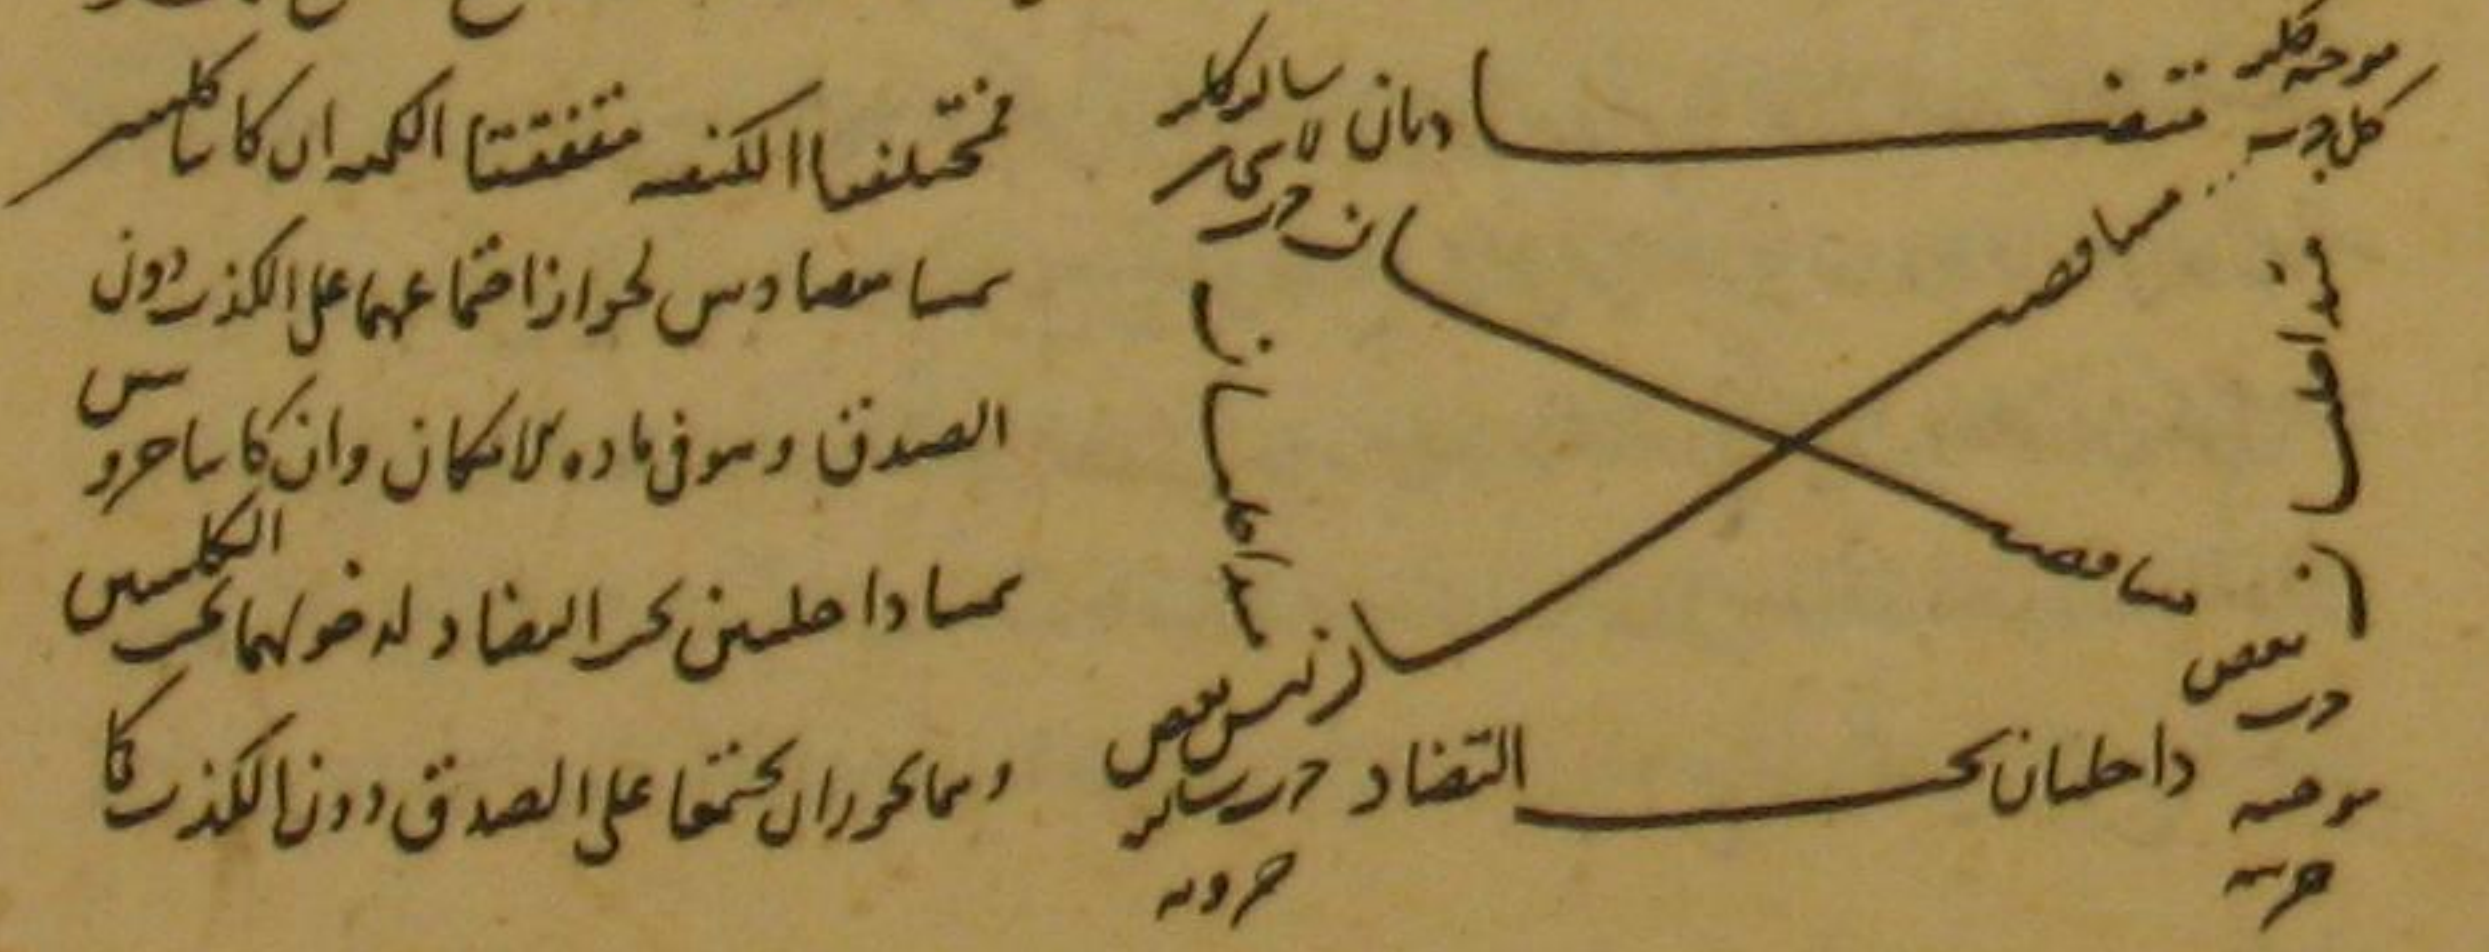 موجبه كليه
كل ج ب
متضـــادتان
سالبه كليه
لا شي من ج ب
متناقضتــان
متداخلتــان
متداخلتــان
متناقضتــان
بعض ج ب
موجبه جزييه
داخلتان تحــت التضاد
ليس بعض ج ب
سالبه جزوييه
فمختلفتا الكيفيه متفقتا الكميه ان كانتا كليتين
سميتا متضادتين لجواز اجتماعهما على الكذب دون
الصدق وهو في ماده الامكان وان كانتا جزويتين
سميتا داخلتين تحت التضاد لدخولهما تحت الكليتين
وهما يجوز ان يجتمعا على الصدق دون الكذب كما